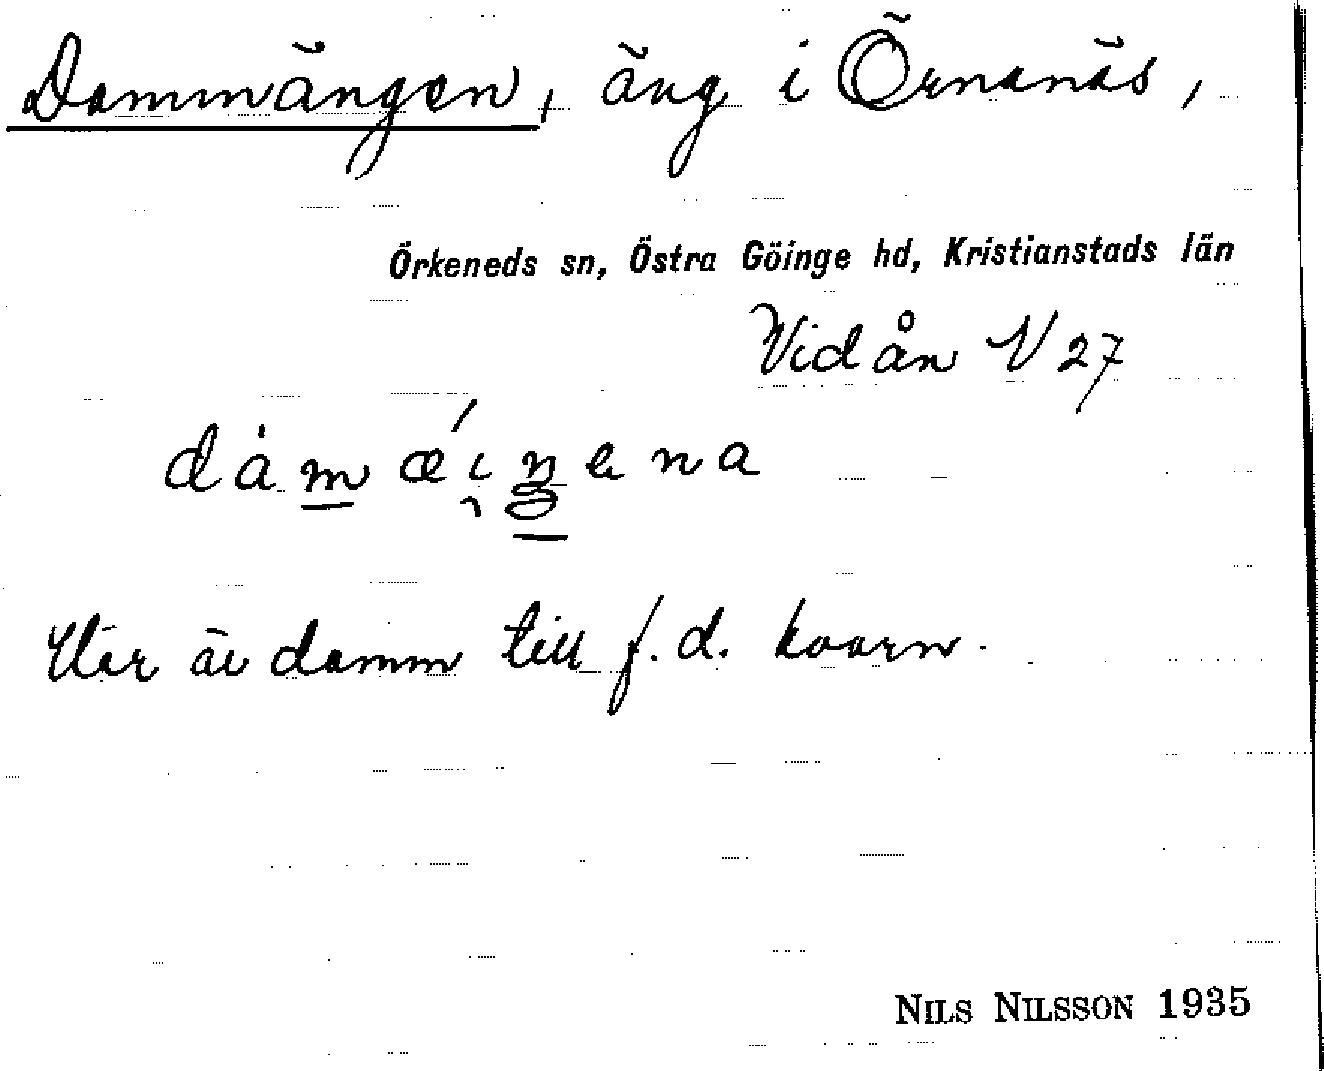 Dammängen, äng i Örnanäs,
Örkeneds sn, Östra Göinge hd, Kristianstads län
Vid ån V 27
dȧmǽi̯ŋena
Här är damm till f. d. kvarn.
NILS NILSSON 1935